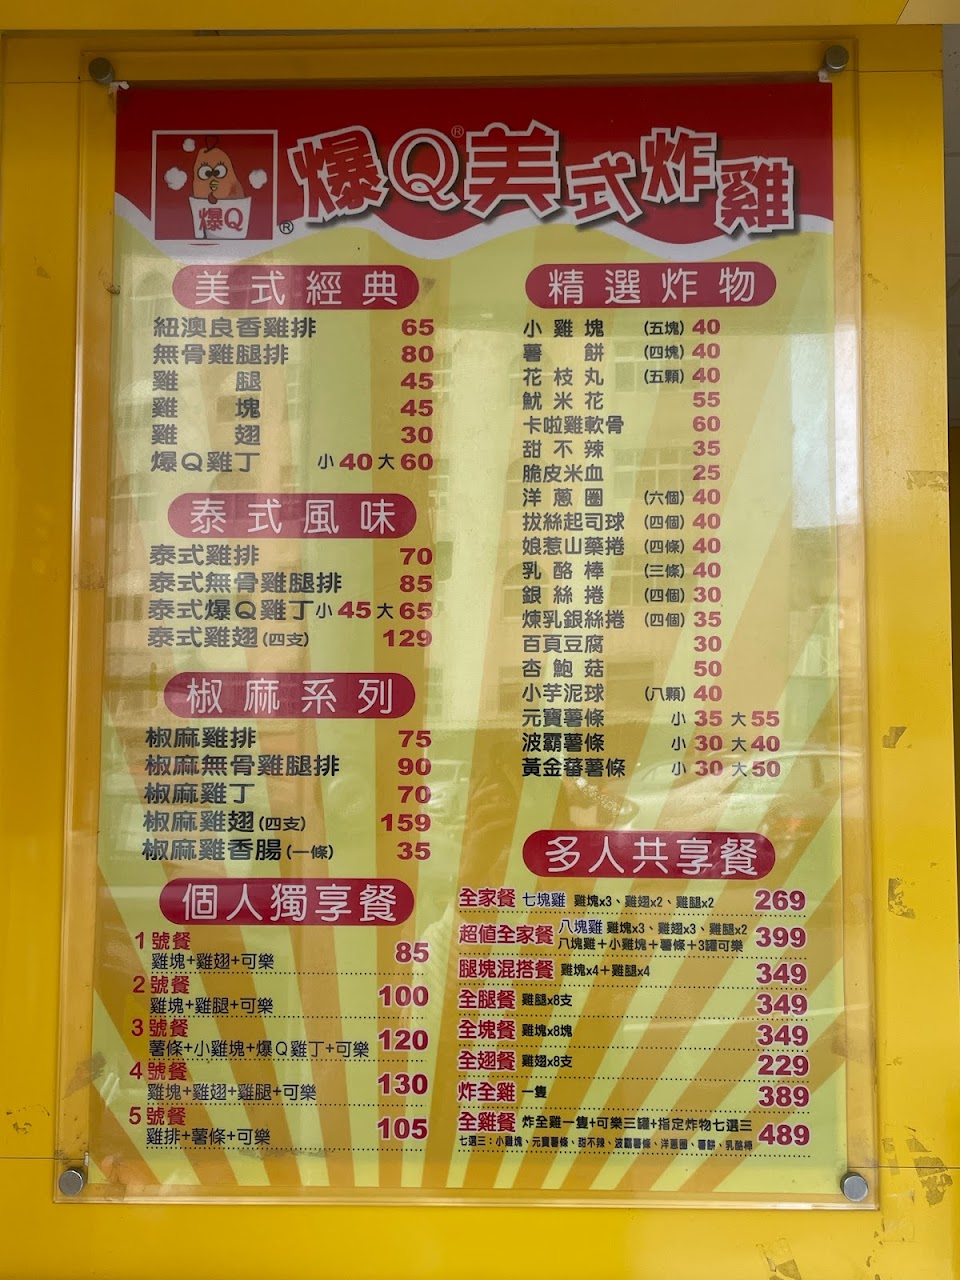 爆Q
®
爆Q®美式炸雞
美式經典
紐澳良香雞排 65
無骨雞腿排 80
雞腿 45
雞塊 45
雞翅 30
爆Q雞丁 小40大60
泰式風味
泰式雞排 70
泰式無骨雞腿排 85
泰式爆Q雞丁小45大65
泰式雞翅(四支) 129
椒麻系列
椒麻雞排 75
椒麻無骨雞腿排 90
椒麻雞丁 70
椒麻雞翅(四支) 159
椒麻雞香腸(一條) 35
個人獨享餐
1號餐
雞塊+雞翅+可樂 85
2號餐
雞塊+雞腿+可樂 100
3號餐
薯條+小雞塊+爆Q雞丁+可樂 120
4號餐
雞塊+雞翅+雞腿+可樂 130
5號餐
雞排+薯條+可樂 105
精選炸物
小雞塊 (五塊) 40
薯餅 (四塊) 40
花枝丸 (五顆) 40
魷米花 55
卡啦雞軟骨 60
甜不辣 35
脆皮米血 25
洋蔥圈 (六個) 40
拔絲起司球 (四個) 40
娘惹山藥捲 (四條) 40
乳酪棒 (三條) 40
銀絲捲 (四個) 30
煉乳銀絲捲 (四個) 35
百頁豆腐 30
杏鮑菇 50
小芋泥球 (八顆) 40
元寶薯條 小 35 大 55
波霸薯條 小 30 大 40
黃金蕃薯條 小 30 大 50
多人共享餐
全家餐 七塊雞 雞塊x3、雞翅x2、雞腿x2 269
超值全家餐 八塊雞 雞塊x3、雞翅x3、雞腿x2
八塊雞+小雞塊+薯條+3罐可樂 399
腿塊混搭餐 雞塊x4+雞腿x4 349
全腿餐 雞腿x8支 349
全塊餐 雞塊x8塊 349
全翅餐 雞翅x8支 229
炸全雞 一隻 389
全雞餐 炸全雞一隻+可樂三罐+指定炸物七選三 489
七選三：小雞塊、元寶薯條、甜不辣、波霸薯條、洋蔥圈、薯餅、乳酪棒